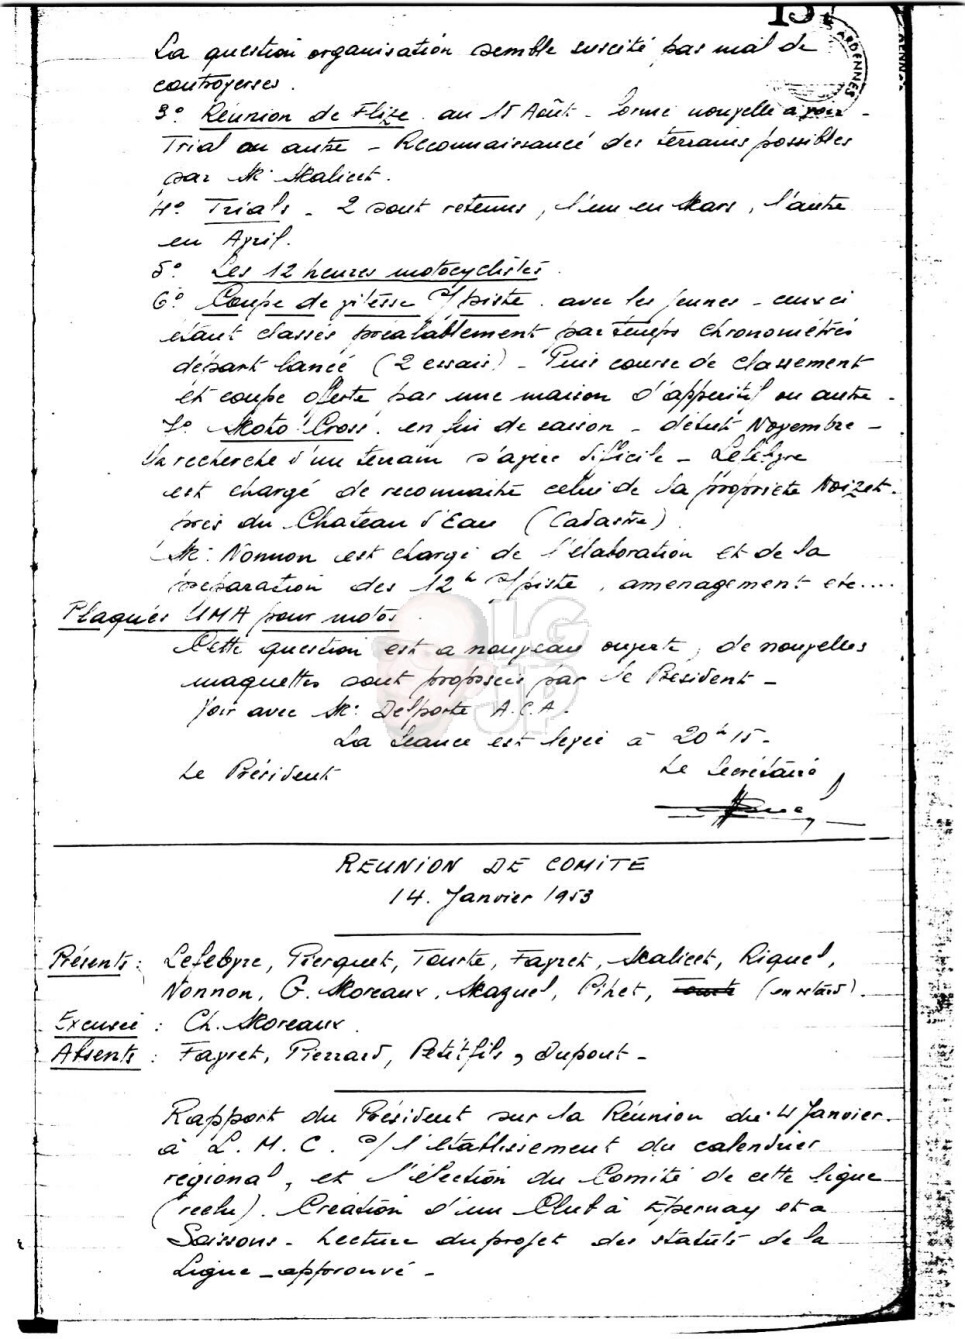 15
ARDENNES
La question organisation semble suscité pas mal de
controverses.
3° Réunion de Flize. au 15 Août - forme nouvelle a voir -
Trial ou autre - Reconnaissance des terrains possibles
par Mr Malicet.
4° Trials - 2 sont retenus, l'un en Mars, l'autre
en Avril.
5° Les 12 heures motocyclistes.
6° Coupe de vitesse s/piste. avec les jeunes - ceux ci
étant classés préalablement par temps chronométrés
départ lancé (2 essais) - Puis course de classement
et coupe offerte par une maison d'apperitif ou autre -
7° Moto Cross. en fin de saison - début Novembre -
la recherche d'un terrain s'avère difficile - Lefebvre
est chargé de reconnaitre celui de la propriété Noizet.
près du Chateau d'Eau (Cadastre)
Mr. Nonnon est chargé de l'élaboration et de la
préparation des 12h s/piste, amenagement etc....
Plaques UMA pour motos.
Cette question est a nouveau ouverte, de nouvelles
maquettes sont proposées par le Président -
Voir avec Mr. Delporte A.C.A.
La séance est levée à 20h15 -
Le Président Le Secrétaire
LG
JP
REUNION DE COMITE
14. Janvier 1953
Présents : Lefebvre, Pierquet, Tourte, Fayret, Malicet, Riquel,
Nonnon, G. Moreaux, Maquel, Pihet, Tourte (en retard).
Excusée : Ch. Moreaux.
Absents : Fayret, Pierrard, Petitfils, Dupont -
Rapport du Président sur la Réunion du 4 Janvier
à L.M.C. s/ l'établissement du calendrier
régional, et l'élection du Comité de cette ligue
(reélu). Création d'un Club à Epernay et a
Soissons - Lecture du projet des statuts de la
Ligue - approuvé -